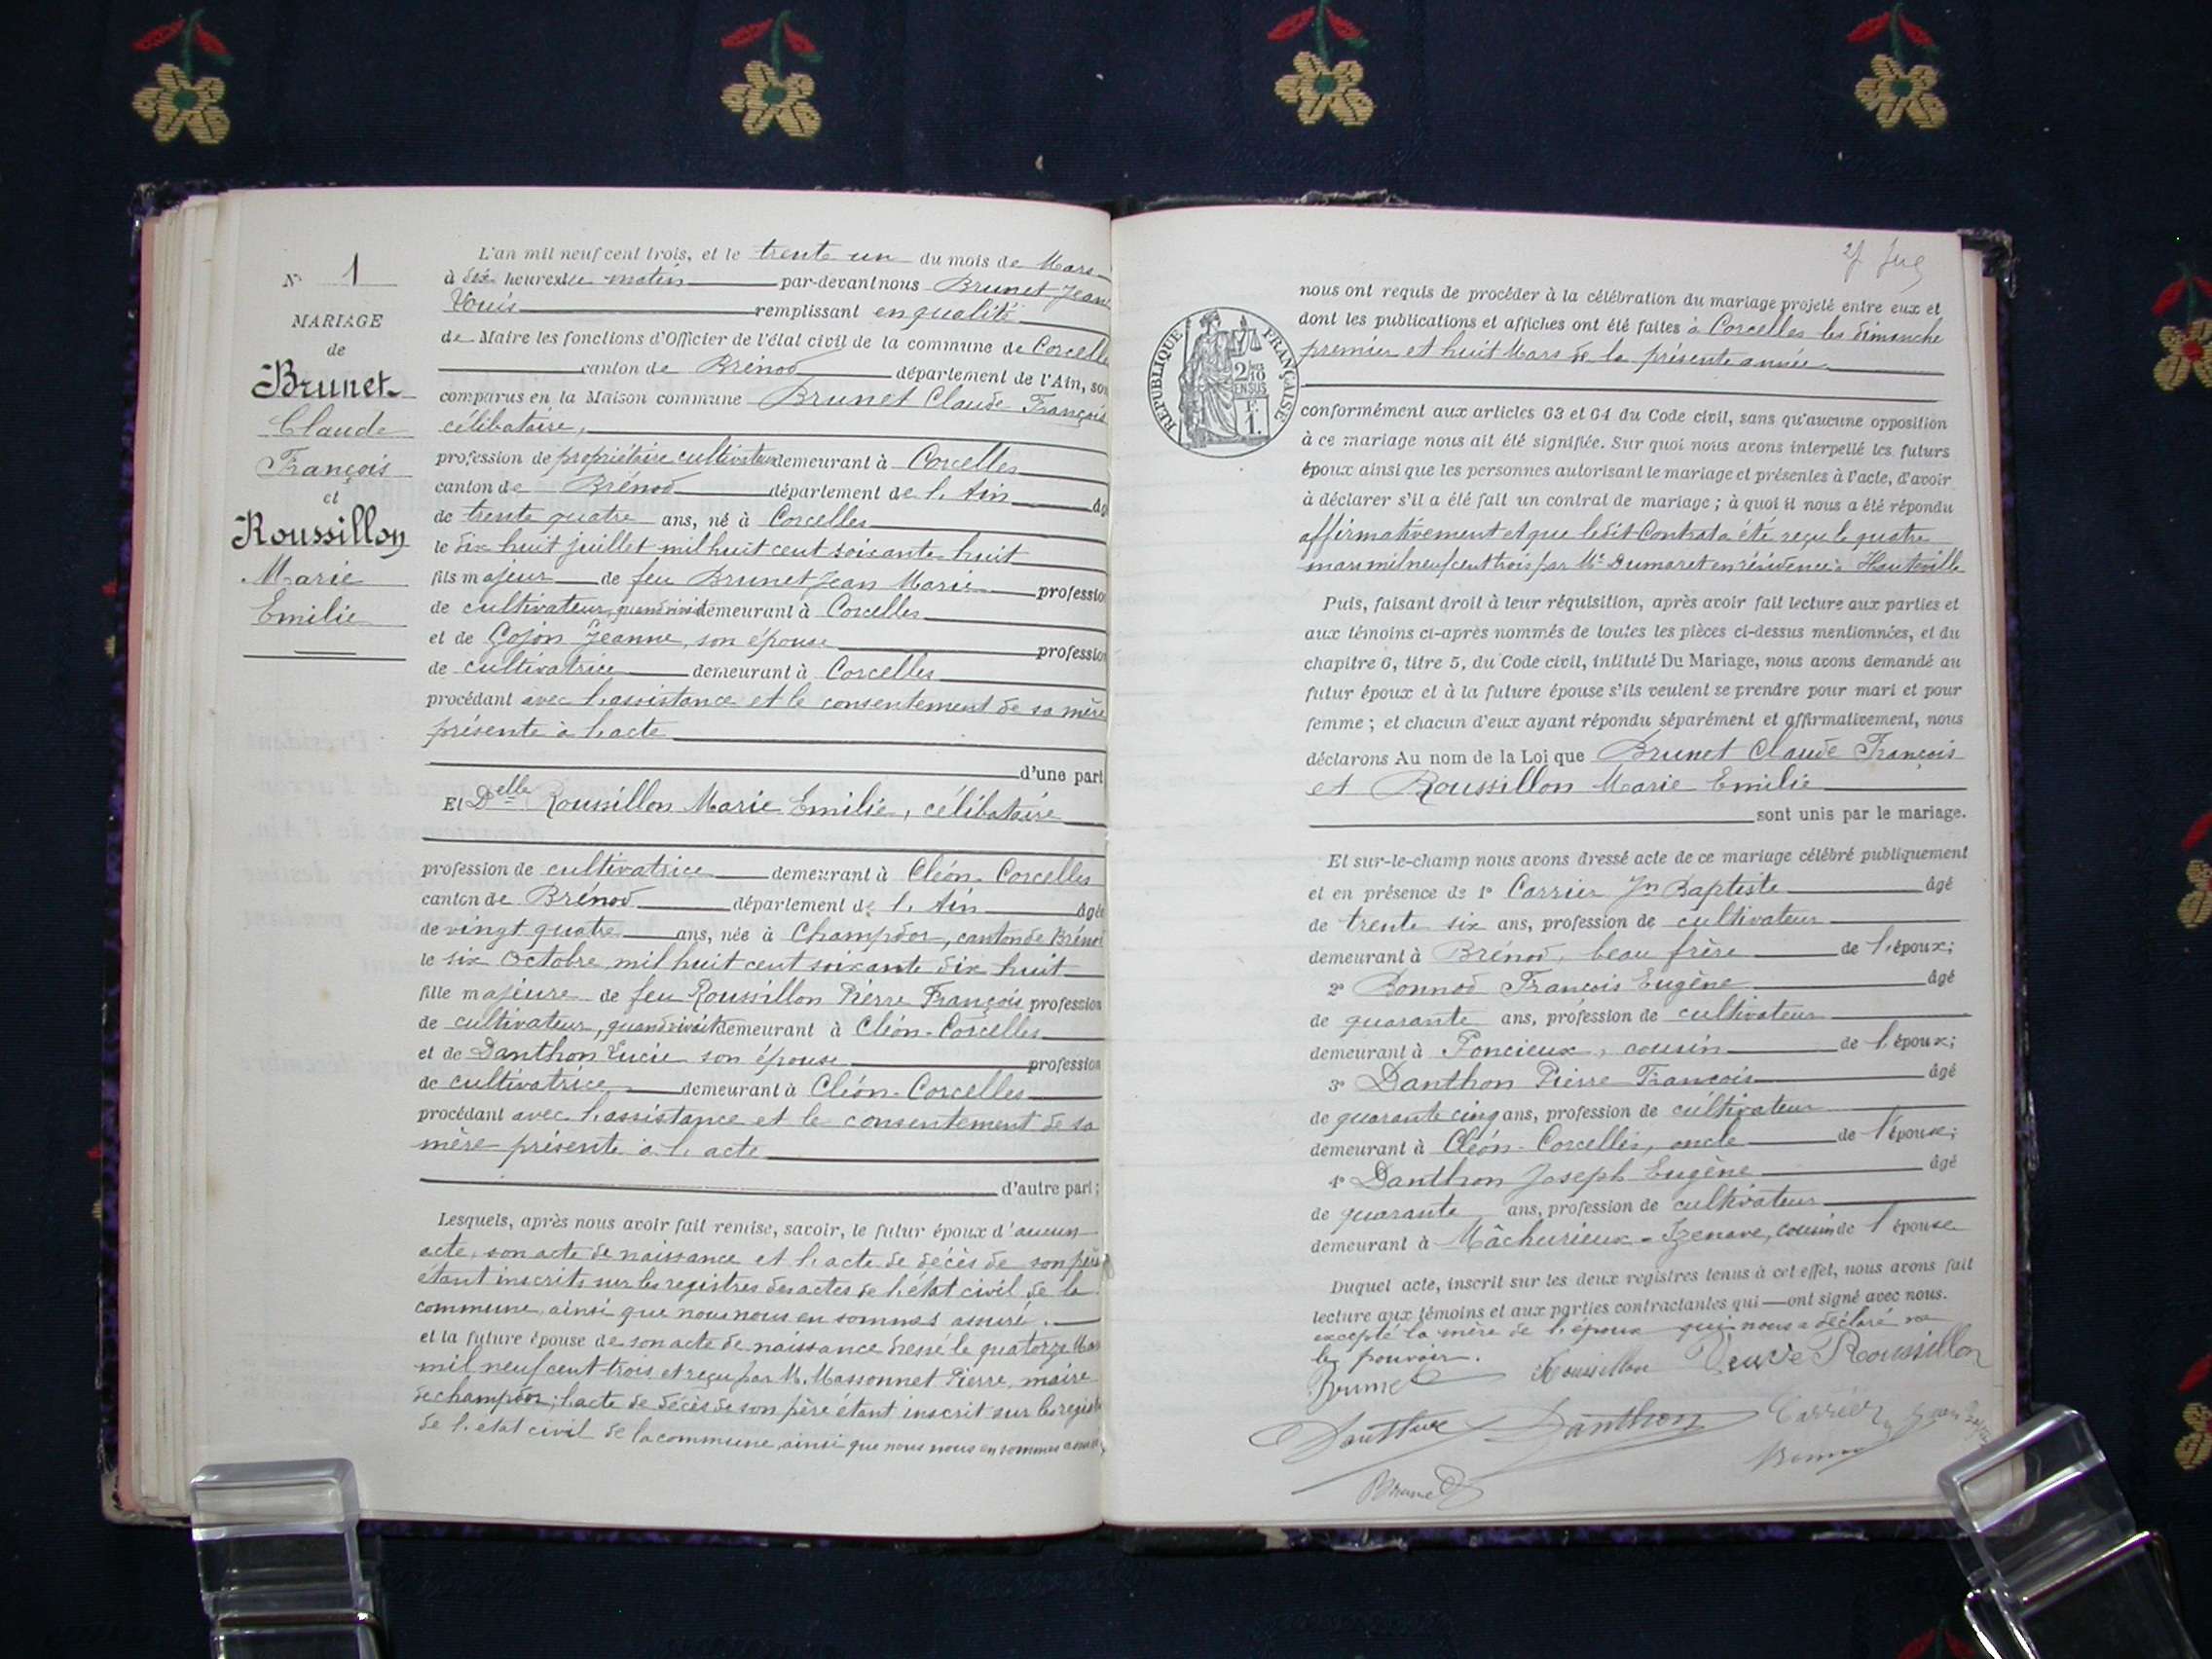 N° 1
MARIAGE
de
Brunet
Claude
François
et
Roussillon
Marie
Emilie
L'an mil neuf cent trois, et le trente un du mois de Mars
à dix heures du matin par-devant nous Brunet Jean
Louis remplissant en qualité
de Maire les fonctions d'Officier de l'état civil de la commune de Corcelle
canton de Brénod département de l'Ain, son
comparus en la Maison commune Brunet Claude François
célibataire,
profession de propriétaire cultivateur demeurant à Corcelles
canton de Brénod département de l'Ain âg
de trente quatre ans, né à Corcelles
le dix huit juillet mil huit cent soixante huit
fils majeur de feu Brunet Jean Marie profession
de cultivateur, quand vivait demeurant à Corcelles
et de Gojon Jeanne, son épouse profession
de cultivatrice demeurant à Corcelles
procédant avec l'assistance et le consentement de sa mère
présente à l'acte
d'une part
Et Delle Roussillon Marie Emilie, célibataire
profession de cultivatrice demeurant à Cléon-Corcelles
canton de Brénod département de l'Ain âgée
de vingt quatre ans, née à Champdor, canton de Brénod
le six Octobre mil huit cent soixante dix huit
fille majeure de feu Roussillon Pierre François profession
de cultivateur, quand vivait demeurant à Cléon-Corcelles
et de Danthon Lucie son épouse profession
de cultivatrice demeurant à Cléon-Corcelles
procédant avec l'assistance et le consentement de sa
mère présente à l'acte
d'autre part;
Lesquels, après nous avoir fait remise, savoir, le futur époux d'aucun
acte, son acte de naissance et l'acte de décès de son père
étant inscrits sur les registres des actes de l'état civil de la
commune, ainsi que nous nous en sommes assuré.
et la future épouse de son acte de naissance dressé le quatorze Mars
mil neuf cent trois et reçu par M. Massonnet Pierre, maire
de champdor; l'acte de décès de son père étant inscrit sur les regist
de l'état civil de la commune, ainsi que nous nous en sommes assuré,
REPUBLIQUE FRANÇAISE
2/10
EN SUS
F.
1.
nous ont requis de procéder à la célébration du mariage projeté entre eux et
dont les publications et affiches ont été faites à Corcelles les dimanche
premier et huit Mars de la présente année
conformément aux articles 63 et 64 du Code civil, sans qu'aucune opposition
à ce mariage nous ait été signifiée. Sur quoi nous avons interpellé les futurs
époux ainsi que les personnes autorisant le mariage et présentes à l'acte, d'avoir
à déclarer s'il a été fait un contrat de mariage; à quoi il nous a été répondu
affirmativement et que ledit Contrat a été reçu le quatre
mars mil neuf cent trois par Me Dumaret en résidence à Hauteville
Puis, faisant droit à leur réquisition, après avoir fait lecture aux parties et
aux témoins ci-après nommés de toutes les pièces ci-dessus mentionnées, et du
chapitre 6, titre 5, du Code civil, intitulé Du Mariage, nous avons demandé au
futur époux et à la future épouse s'ils veulent se prendre pour mari et pour
femme; et chacun d'eux ayant répondu séparément et affirmativement, nous
déclarons Au nom de la Loi que Brunet Claude François
et Roussillon Marie Emilie
sont unis par le mariage.
Et sur-le-champ nous avons dressé acte de ce mariage célébré publiquement
et en présence de 1° Carrier Jn Baptiste âgé
de trente six ans, profession de cultivateur
demeurant à Brénod, beau frère de l'époux;
2° Bonnod François Eugène âgé
de quarante ans, profession de cultivateur
demeurant à Poncieux, cousin de l'époux;
3° Danthon Pierre François âgé
de quarante cinq ans, profession de cultivateur
demeurant à Cléon-Corcelles, oncle de l'épouse;
4° Danthon Joseph Eugène âgé
de quarante ans, profession de cultivateur
demeurant à Mâchurieux-Izenave, cousin de l'épouse
Duquel acte, inscrit sur les deux registres tenus à cet effet, nous avons fait
lecture aux témoins et aux parties contractantes qui ont signé avec nous.
excepté la mère de l'époux qui nous a déclaré ne
le pouvoir.
Brunet Roussillon Veuve Roussillon
Danthon Danthon Carrier Jean
Brunet Bonnod